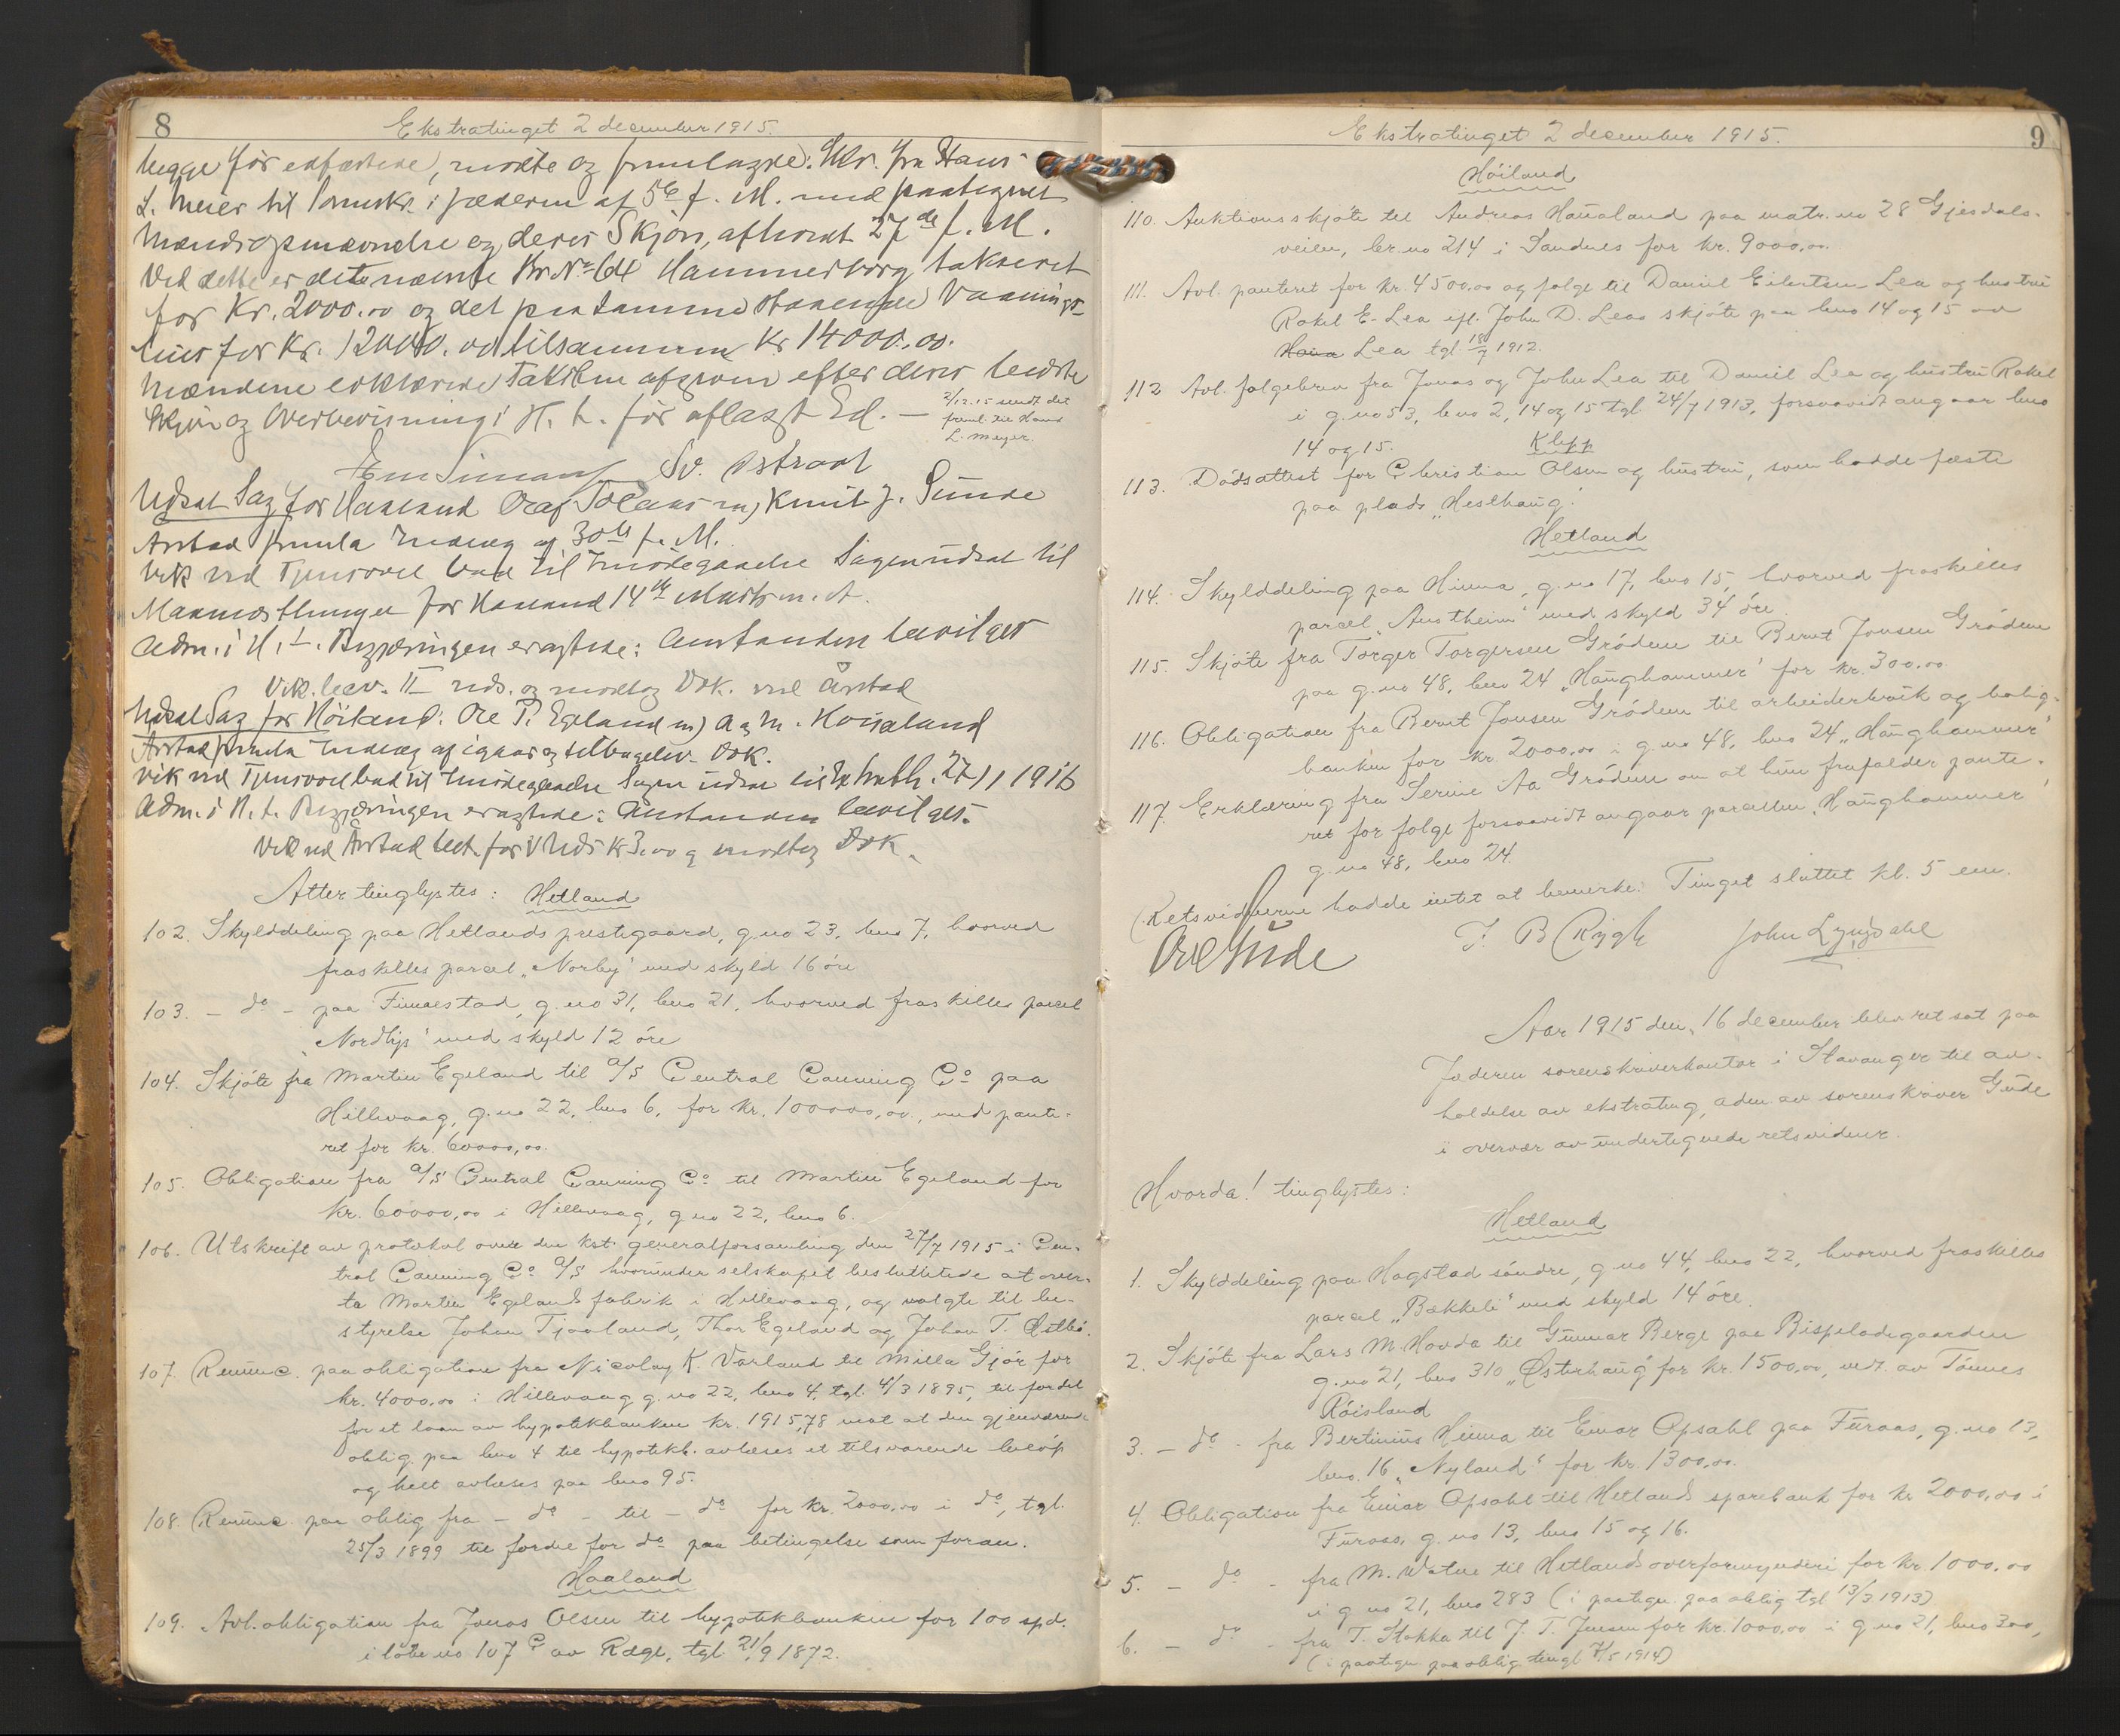 8
Ekstratinget 2 december 1915.
begge før edfæstede, mødte og fremlagde: Skr. fra Hans
L. Meier til Sorenskr. i Jæderen af 5te f. M. med paategnet
Mændsopnævnelse og deres Skjøn, afhomt 27de f. M.
Ved dette er det nævnte Br No 64 Hammerborg takseret
for Kr. 2000.00 og det paa samme staaende Vaanings-
hus for Kr. 12000.00 tilsammen Kr 14000.00.
Mændene erklærede Taksten afgiven efter deres bedste
Skjøn og Overbevisning i H. t. før aflagt Ed. —
2/12.15 sendt det
freml. til Hans
L. Meyer.
Em Simonsen Sv. Østraat
Udsat Sag for Haaland Olaf Tolaas m) Knut J. Sunde
Årstad fremla Indlæg af 30te f. M.
Vik ved Tjensvold bad til Imødegaaelse Sagen udsat til
Maanedsthinget for Haaland 14de Marts n. A.
Adm. i H. t. Begjæringen eragtede: Anstanden bevilges
Vik. bev. II uds. og modtog Dok. ved Årstad
Udsat Sag for Höiland: Ole P. Egeland m) A. M. Hovaland
Årstad fremla Indlæg af igaar og tilbagelev. Dok.
Vik ved Tjensvold bad til Imødegaaelse Sagen udsat til 27/1 1916
Adm. i H. t. Begjæringen eragtede: Anstanden bevilges.
Vik ved Årstad bet. for Uds Kr 3.00 og modtog Dok.
Atter tinglystes: Hetland
102. Skylddeling paa Hetlands prestegaard, g.no 23, bno 7, hvorved
fraskilles parcel „Norby" med skyld 16 öre
103. - do - paa Finnestad, g.no 31, bno 21, hvorved fraskilles parcel
„Nordlys" med skyld 12 öre
104. Skjöte fra Martin Egeland til A/S Central Canning Co paa
Hillevaag, g.no 22, bno 6, for kr. 100000,00, med pante-
ret for kr. 60000,00.
105. Obligation fra A/S Central Canning Co til Martin Egeland for
kr. 60000,00 i Hillevaag, g no 22, bno 6.
106. Utskrift av protokol over den kst. generalforsamling den 27/7 1915 i Cen-
tral Canning Co A/S hvorunder selskapet besluttetede at over-
ta Martin Egelands fabrik i Hillevaag, og valgte til be-
styrelse Johan Tjaaland, Thor Egeland og Johan T. Østbö.
107. Renunc. paa obligation fra Nicolay K. Varland til Milla Gjör for
kr. 4000,00 i Hillevaag g.no 22, bno 4, tgl. 4/3 1895, til fordel
for et laan av hypotekbanken kr. 1915,78 mot at den gjenværende
oblig. paa bno 4 til hypotekb. avlæses et tilsvarende belöp
og helt avlæses paa bno 95.
108. Renunc. paa oblig fra - do - til - do for kr. 2000,00 i do, tgl.
25/3 1899 til fordel for do paa betingelse som foran.
Haaland
109. Avl. obligation fra Jonas Olsen til hypotekbanken for 100 spd.
i löbe no 107 C av Ræge, tgl. 21/9 1872.
Ekstratinget 2 december 1915.
9
Höiland
110. Auktionsskjöte til Andreas Haualand paa matr. no 28 Gjesdals-
veien, br. no 214 i Sandnes for kr. 9000,00.
111. Avl. panteret for kr. 4500.00 og følge til Daniel Eilertsen Lea og hustru
Rakel E. Lea efl. John D. Leas skjöte paa bno 14 og 15 av
Lea tgl 18/7 1912.
112 Avl. følgebrev fra Jonas og John Lea til Daniel Lea og hustru Rakel
i g.no 53, bno 2, 14 og 15 tgl. 24/7 1913, forsaavidt angaar bno
14 og 15.
Klepp
113. Dödsattest for Christian Olsen og hustru, som hadde fæste
paa plads „Heslhaug".
Hetland
114. Skylddeling paa Hinna, g.no 17, bno 15, hvorved fraskilles
parcel „Austheim" med skyld 34 öre.
115. Skjöte fra Torger Torgersen Grödem til Bernt Jonsen Grödem
paa g.no 48, bno 24 „Haughammer" for kr. 300,00.
116. Obligation fra Bernt Jonsen Grödem til arbeiderbruk og bolig-
banken for kr. 2000,00 i g.no 48, bno 24 „Haughammer"
117. Erklæring fra Serine Aa Grödem om at hun frafalder pante-
ret for følge forsaavidt angaar parcellen „Haughammer"
g.no 48, bno 24.
Retsvidnerne hadde intet at bemerke. Tinget sluttet kl. 5 em.
Ove Gude T. B Rygh John Lyngdahl
Aar 1915 den 16 december blev ret sat paa
Jæderen sorenskriverkontor i Stavanger til av-
holdelse av ekstrating, adm av sorenskriver Gude
i overvær av undertegnede retsvidner.
Hvorda! tinglystes:
Hetland
1. Skylddeling paa Hogstad söndre, g no 44, bno 22, hvorved fraskilles
parcel „Bækkeli" med skyld 14 öre.
2. Skjöte fra Lars M. Hovda til Gunnar Berge paa Bispeladegaarden
g.no 21, bno 310 „Østerhaug" for kr. 1500,00, vedt. av Tönnes
Röisland
3. - do - fra Bertinius Hinna til Einar Opsahl paa Furaas, g.no 13,
bno. 16 „Nyland" for kr. 1300,00.
4. Obligation fra Einar Opsahl til Hetlands sparebank for kr 2000,00 i
Furaas, g.no 13, bno 15 og 16.
5. - do - fra M. Watne til Hetlands overformynderi for kr. 1000,00
i g no 21, bno 283 (i paategn. paa oblig tgl 13/3 1913)
6. - do - fra T. Stokka til J. T. Jensen for kr. 1000,00 i g no 21, bno 300,
(i paategn paa oblig tingl /5 1914)